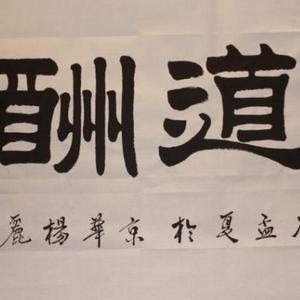 道酬
孟夏於京華楊麗